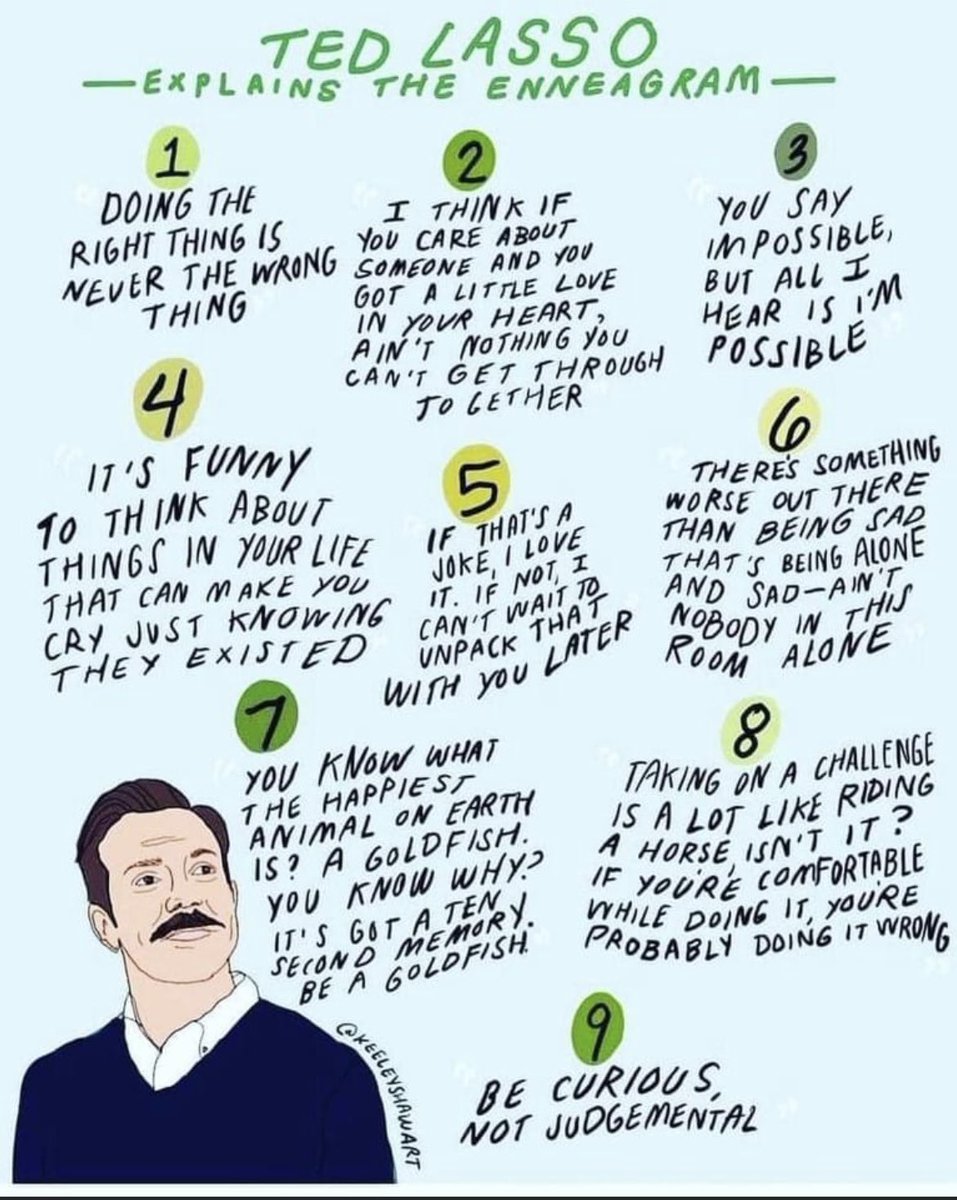 TED LASSO
EXPLAINS THE ENNEAGRAM
1
DOING THE
RIGHT THING IS
NEVER THE WRONG
THING
2
I THINK IF
YOU CARE ABOUT
SOMEONE AND YOU
GOT A LITTLE LOVE
IN YOUR HEART,
AIN'T NOTHING YOU
CAN'T GET THROUGH
TOGETHER
3
YOU SAY
IMPOSSIBLE,
BUT ALL I
HEAR IS I'M
POSSIBLE
4
IT'S FUNNY
TO THINK ABOUT
THINGS IN YOUR LIFE
THAT CAN MAKE YOU
CRY JUST KNOWING
THEY EXISTED
5
IF THAT'S A
JOKE, I LOVE
IT. IF NOT, I
CAN'T WAIT TO
UNPACK THAT
WITH YOU LATER
6
THERE'S SOMETHING
WORSE OUT THERE
THAN BEING SAD
THAT'S BEING ALONE
AND SAD—AIN'T
NOBODY IN THIS
ROOM ALONE
7
YOU KNOW WHAT
THE HAPPIEST
ANIMAL ON EARTH
IS? A GOLDFISH.
YOU KNOW WHY?
IT'S GOT A TEN
SECOND MEMORY.
BE A GOLDFISH.
8
TAKING ON A CHALLENGE
IS A LOT LIKE RIDING
A HORSE, ISN'T IT?
IF YOU'RE COMFORTABLE
WHILE DOING IT, YOU'RE
PROBABLY DOING IT WRONG
9
BE CURIOUS,
NOT JUDGEMENTAL
@KEELEYSHAWART